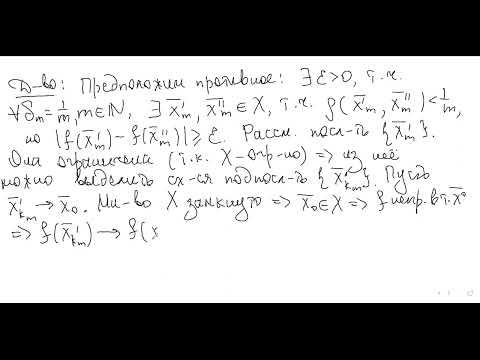 Д-во: Предположим противное: ∃ ε>0, т.ч.
∀δₘ=1/m, m∈ℕ, ∃ x̄ₘ', x̄ₘ''∈X, т.ч. ρ(x̄ₘ', x̄ₘ'')<1/m,
но |f(x̄ₘ')-f(x̄ₘ'')|⩾ε. Рассм. посл-ть {x̄ₘ'}.
Она ограничена (т.к. X-огр-но) => из неё
можно выделить сх-ся подпосл-ть {x̄'ₖₘ}. Пусть
x̄'ₖₘ→x̄₀. Мн-во X замкнуто => x̄₀∈X => f непр. в т. x̄⁰
=> f(x̄'ₖₘ) → f(x